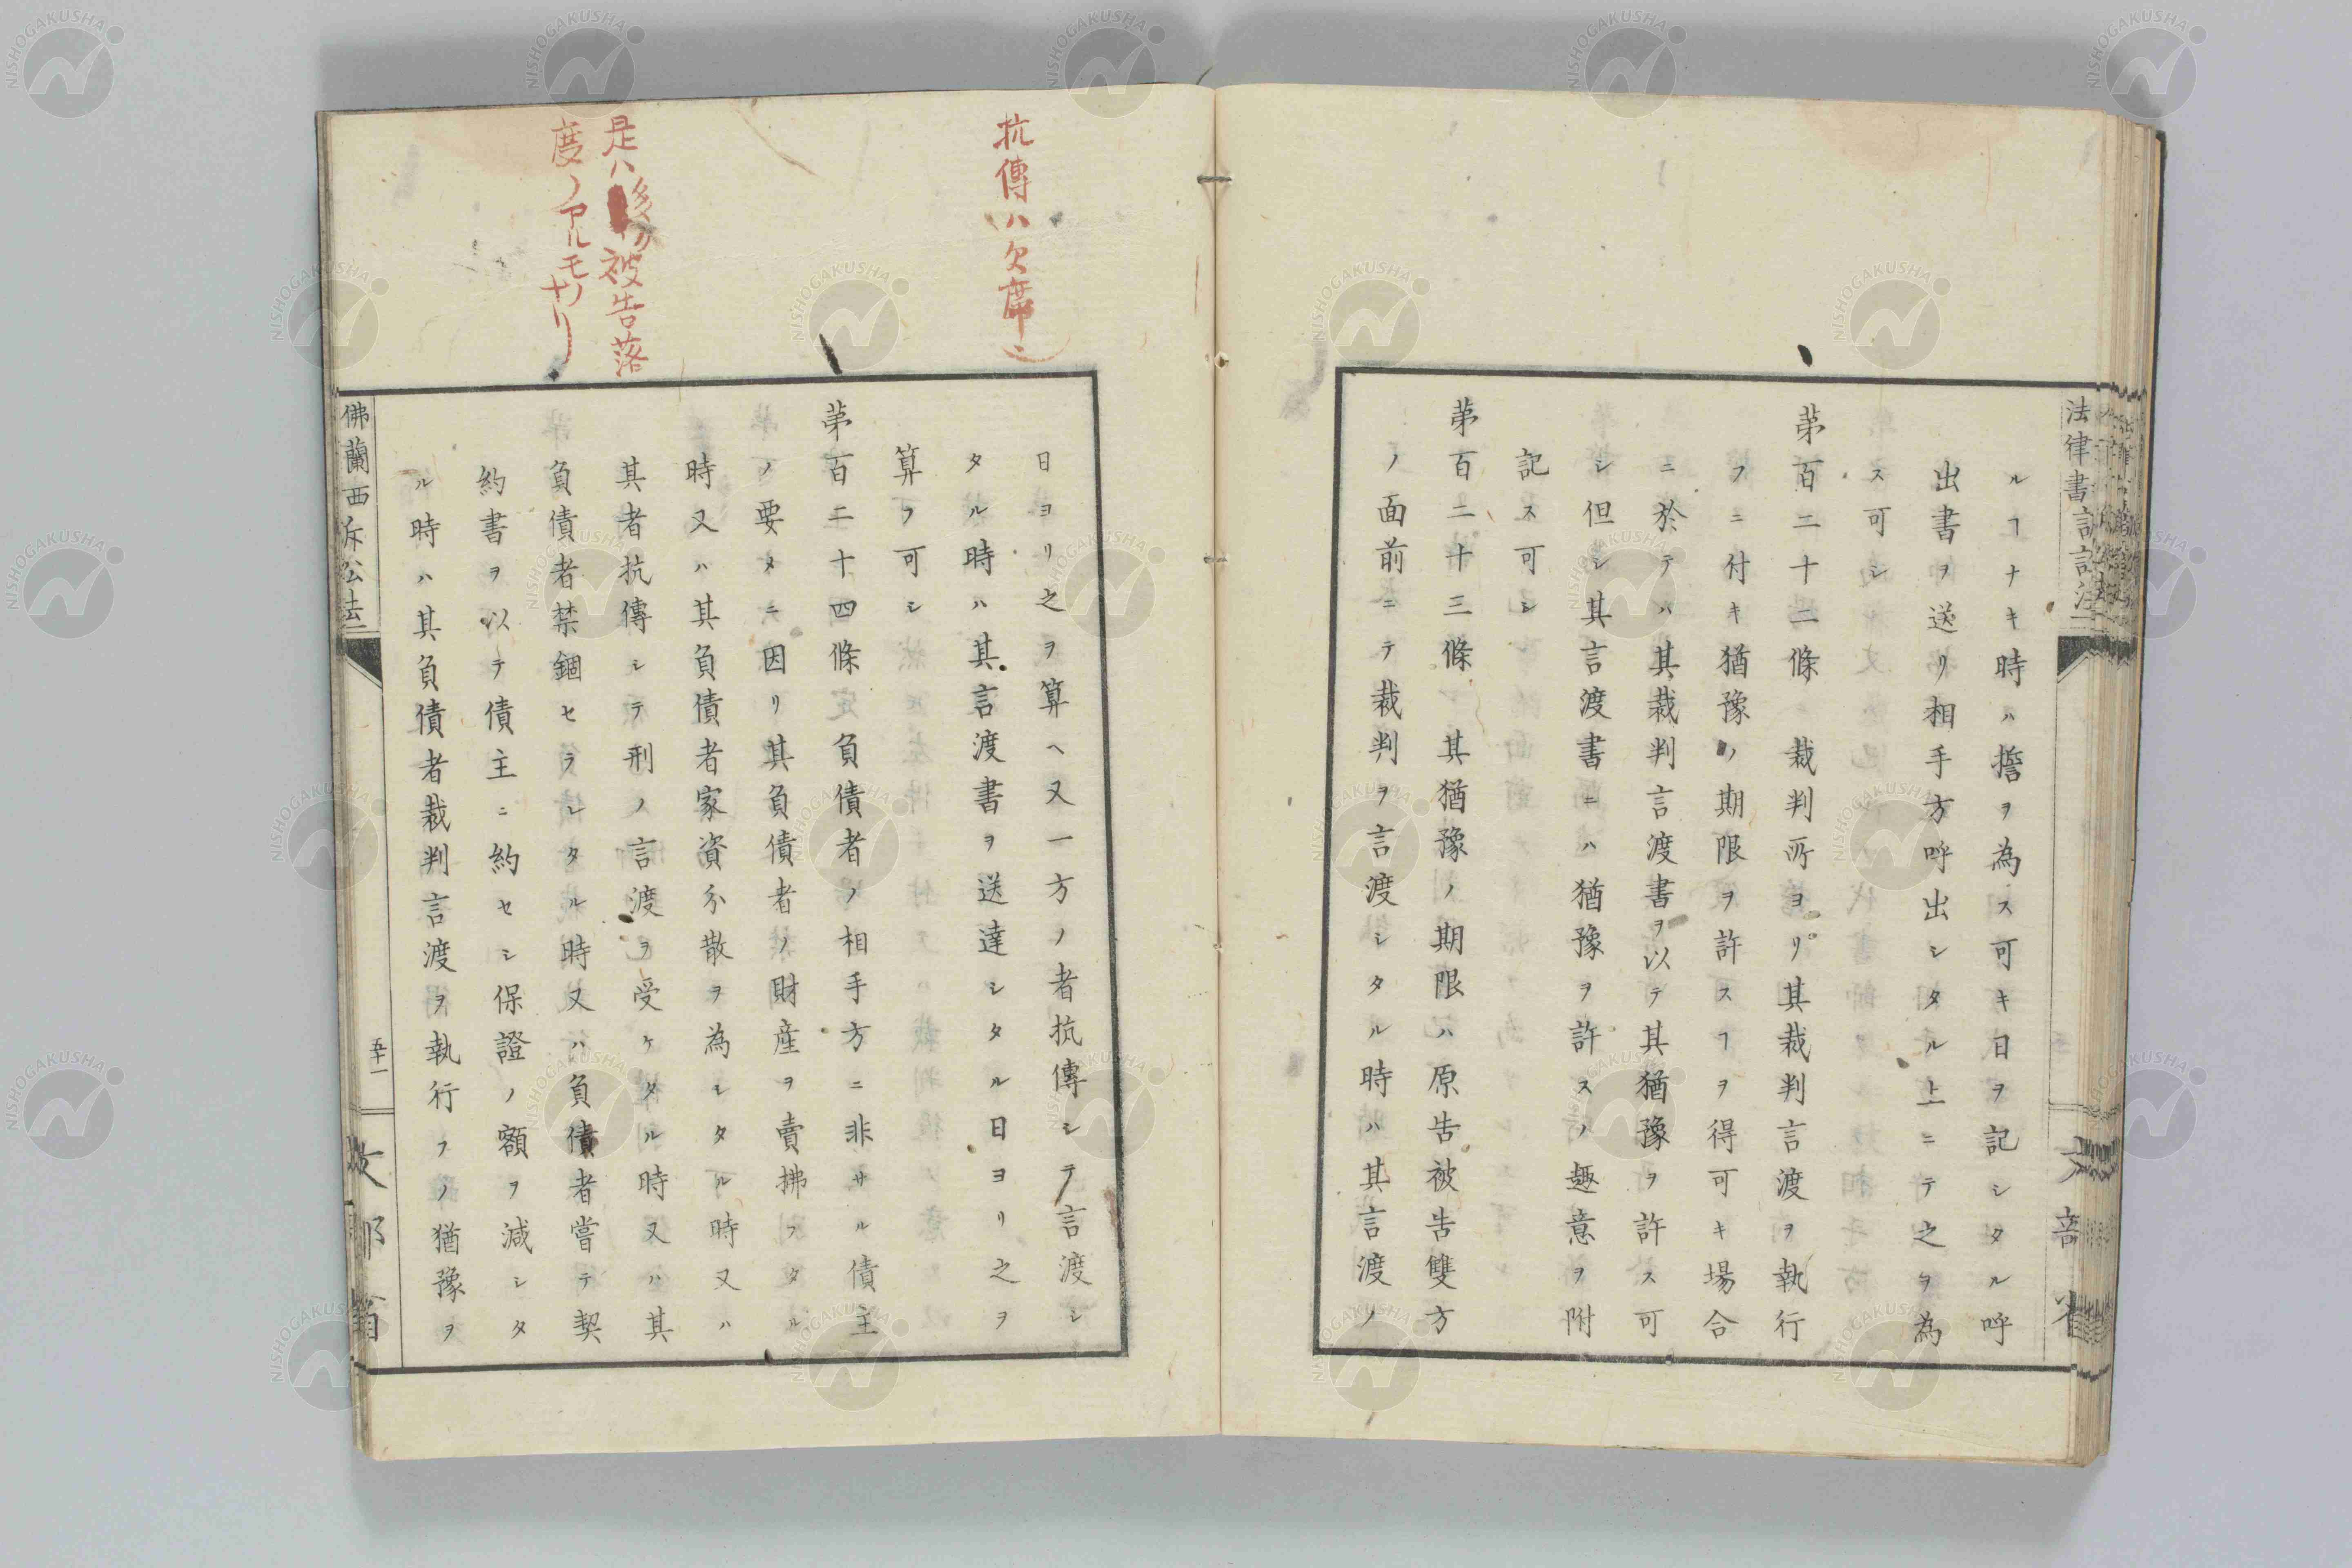 ルヿナキ時ハ擔ヲ為ス可キ日ヲ記シタル呼
出書ヲ送リ相手方呼出シタル上ニテ之ヲ為
ス可シ
第百二十二條 裁判所ヨリ其裁判言渡ヲ執行
フニ付キ猶豫ノ期限ヲ許スヿヲ得可キ場合
ニ於テハ其裁判言渡書ヲ以テ其猶豫ヲ許ス可
シ但シ其言渡書ニハ猶豫ヲ許スノ趣意ヲ附
記ス可シ
第百二十三條 其猶豫ノ期限ハ原告被告雙方
ノ面前ニテ裁判ヲ言渡シタル時ハ其言渡ノ
抗傳ハ欠席ニ
日ヨリ之ヲ算ヘ又一方ノ者抗傳シテ言渡シ
タル時ハ其言渡書ヲ送達シタル日ヨリ之ヲ
算フ可シ
第百二十四條 負債者ノ相手方ニ非サル債主
ノ要タニ因リ其負債者ノ財産ヲ賣拂フタル
時又ハ其負債者家資分散ヲ為シタル時又ハ
是ハ後ノ被告落
度ノアルモノナリ
其者抗傳シテ刑ノ言渡ヲ受ケタル時又ハ其
負債者禁錮セラレタル時又ハ負債者嘗テ契
約書ヲ以テ債主ニ約セシ保證ノ額ヲ減シタ
ル時ハ其負債者裁判言渡ヲ執行フノ猶豫ヲ
佛蘭西訴訟法
五十一
文部省
NISHOGAKUSHA